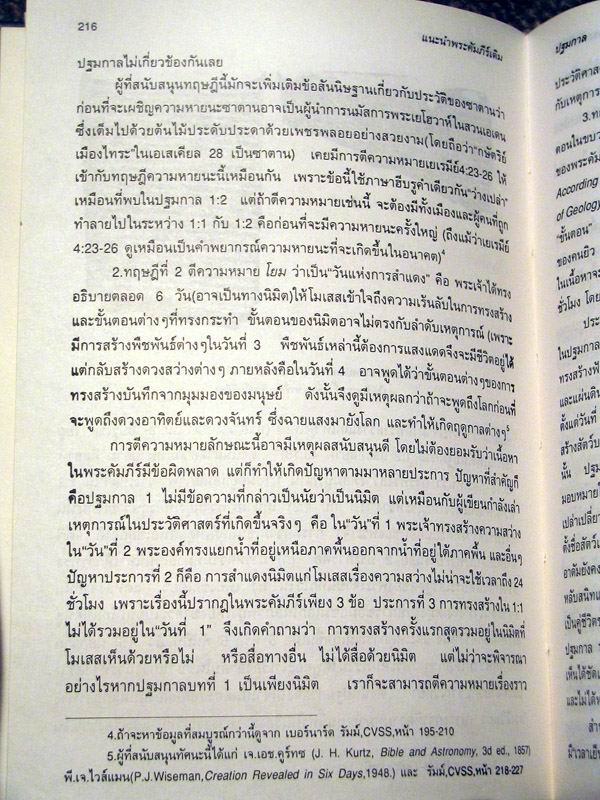 216
แนะนำพระคัมภีร์เดิม
ปฐมกาลไม่เกี่ยวข้องกันเลย
ผู้ที่สนับสนุนทฤษฎีนี้มักจะเพิ่มเติมข้อสันนิษฐานเกี่ยวกับประวัติของซาตานว่า
ก่อนที่จะเผชิญความหายนะซาตานอาจเป็นผู้นำการนมัสการพระเยโฮวาห์ในสวนเอเดน
ซึ่งเต็มไปด้วยต้นไม้ประดับประดาด้วยเพชรพลอยอย่างสวยงาม(โดยถือว่า"กษัตริย์
เมืองไทระ"ในเอเสเคียล 28 เป็นซาตาน) เคยมีการตีความหมายเยเรมีย์4:23-26 ให้
เข้ากับทฤษฎีความหายนะนี้เหมือนกัน เพราะข้อนี้ใช้ภาษาฮีบรูคำเดียวกัน"ว่างเปล่า"
เหมือนที่พบในปฐมกาล 1:2 แต่ถ้าตีความหมายเช่นนี้ จะต้องมีทั้งเมืองและผู้คนที่ถูก
ทำลายไปในระหว่าง 1:1 กับ 1:2 คือก่อนที่จะมีความหายนะครั้งใหญ่ (ถึงแม้ว่าเยเรมีย์
4:23-26 ดูเหมือนเป็นคำพยากรณ์ความหายนะที่จะเกิดขึ้นในอนาคต)⁴
2.ทฤษฎีที่ 2 ตีความหมาย โยม ว่าเป็น"วันแห่งการสำแดง" คือ พระเจ้าได้ทรง
อธิบายตลอด 6 วัน(อาจเป็นทางนิมิต)ให้โมเสสเข้าใจถึงความเร้นลับในการทรงสร้าง
และขั้นตอนต่างๆที่ทรงกระทำ ขั้นตอนของนิมิตอาจไม่ตรงกับลำดับเหตุการณ์ (เพราะ
มีการสร้างพืชพันธ์ต่างๆในวันที่ 3 พืชพันธ์เหล่านี้ต้องการแสงแดดจึงจะมีชีวิตอยู่ได้
แต่กลับสร้างดวงสว่างต่างๆ ภายหลังคือในวันที่ 4 อาจพูดได้ว่าขั้นตอนต่างๆของการ
ทรงสร้างบันทึกจากมุมมองของมนุษย์ ดังนั้นจึงดูมีเหตุผลกว่าถ้าจะพูดถึงโลกก่อนที่
จะพูดถึงดวงอาทิตย์และดวงจันทร์ ซึ่งฉายแสงมายังโลก และทำให้เกิดฤดูกาลต่างๆ⁵
การตีความหมายลักษณะนี้อาจมีเหตุผลสนับสนุนดี โดยไม่ต้องยอมรับว่าเนื้อหา
ในพระคัมภีร์มีข้อผิดพลาด แต่ก็ทำให้เกิดปัญหาตามมาหลายประการ ปัญหาที่สำคัญก็
คือปฐมกาล 1 ไม่มีข้อความที่กล่าวเป็นนัยว่าเป็นนิมิต แต่เหมือนกับผู้เขียนกำลังเล่า
เหตุการณ์ในประวัติศาสตร์ที่เกิดขึ้นจริงๆ คือ ใน"วัน"ที่ 1 พระเจ้าทรงสร้างความสว่าง
ใน"วัน"ที่ 2 พระองค์ทรงแยกน้ำที่อยู่เหนือภาคพื้นออกจากน้ำที่อยู่ใต้ภาคพื้น และอื่นๆ
ปัญหาประการที่ 2 ก็คือ การสำแดงนิมิตแก่โมเสสเรื่องความสว่างไม่น่าจะใช้เวลาถึง 24
ชั่วโมง เพราะเรื่องนี้ปรากฏในพระคัมภีร์เพียง 3 ข้อ ประการที่ 3 การทรงสร้างใน 1:1
ไม่ได้รวมอยู่ใน"วันที่ 1" จึงเกิดคำถามว่า การทรงสร้างครั้งแรกสุดรวมอยู่ในนิมิตที่
โมเสสเห็นด้วยหรือไม่ หรือสื่อทางอื่น ไม่ได้สื่อด้วยนิมิต แต่ไม่ว่าจะพิจารณา
อย่างไรหากปฐมกาลบทที่ 1 เป็นเพียงนิมิต เราก็จะสามารถตีความหมายเรื่องราว
4.ถ้าจะหาข้อมูลที่สมบูรณ์กว่านี้ดูจาก เบอิร์นาร์ด รัมม์,CVSS,หน้า 195-210
5.ผู้ที่สนับสนุนทัศนะนี้ได้แก่ เจ.เอช.คูร์ทซ (J. H. Kurtz, Bible and Astronomy, 3d ed., 1857)
พี.เจ.ไวส์แมน(P.J.Wiseman,Creation Revealed in Six Days,1948.) และ รัมม์,CVSS,หน้า 218-227
ปฐมกาล
ประวัติศาส
กับเหตุการ
3.ท
ตอนในขบว
ของพระคัม
According
of Geology)
"ขั้นตอน"
ของคนยิว
ในเนื้อหาจะ
ชั่วโมง โดย
ประ
ในปฐมกาล
ทรงสร้างฟ้
และแผ่นดิน
ตั้งแต่วันที่
สร้างสัตว์บ
นั้น ปฐม
มอบหมาย
เปล่าเปลี่ยว
ตั้งชื่อสัตว์เ
อาดัมยังคง
หลับสนิทแ
เป็นคู่ชีวิตร
ปฐมกาล 1
เห็นได้ชัดเ
และไม่ได้ห